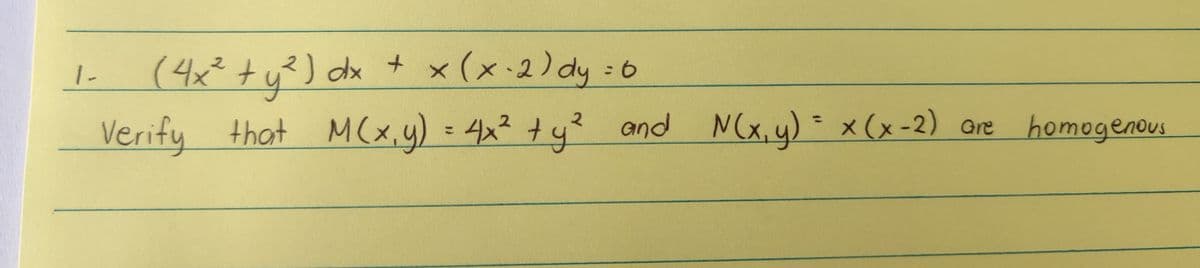 1- (4x² + y²) dx + x (x-2) dy = 0
Verify that M(x,y) = 4x² + y² and N(x,y) = x(x-2) are homogenous